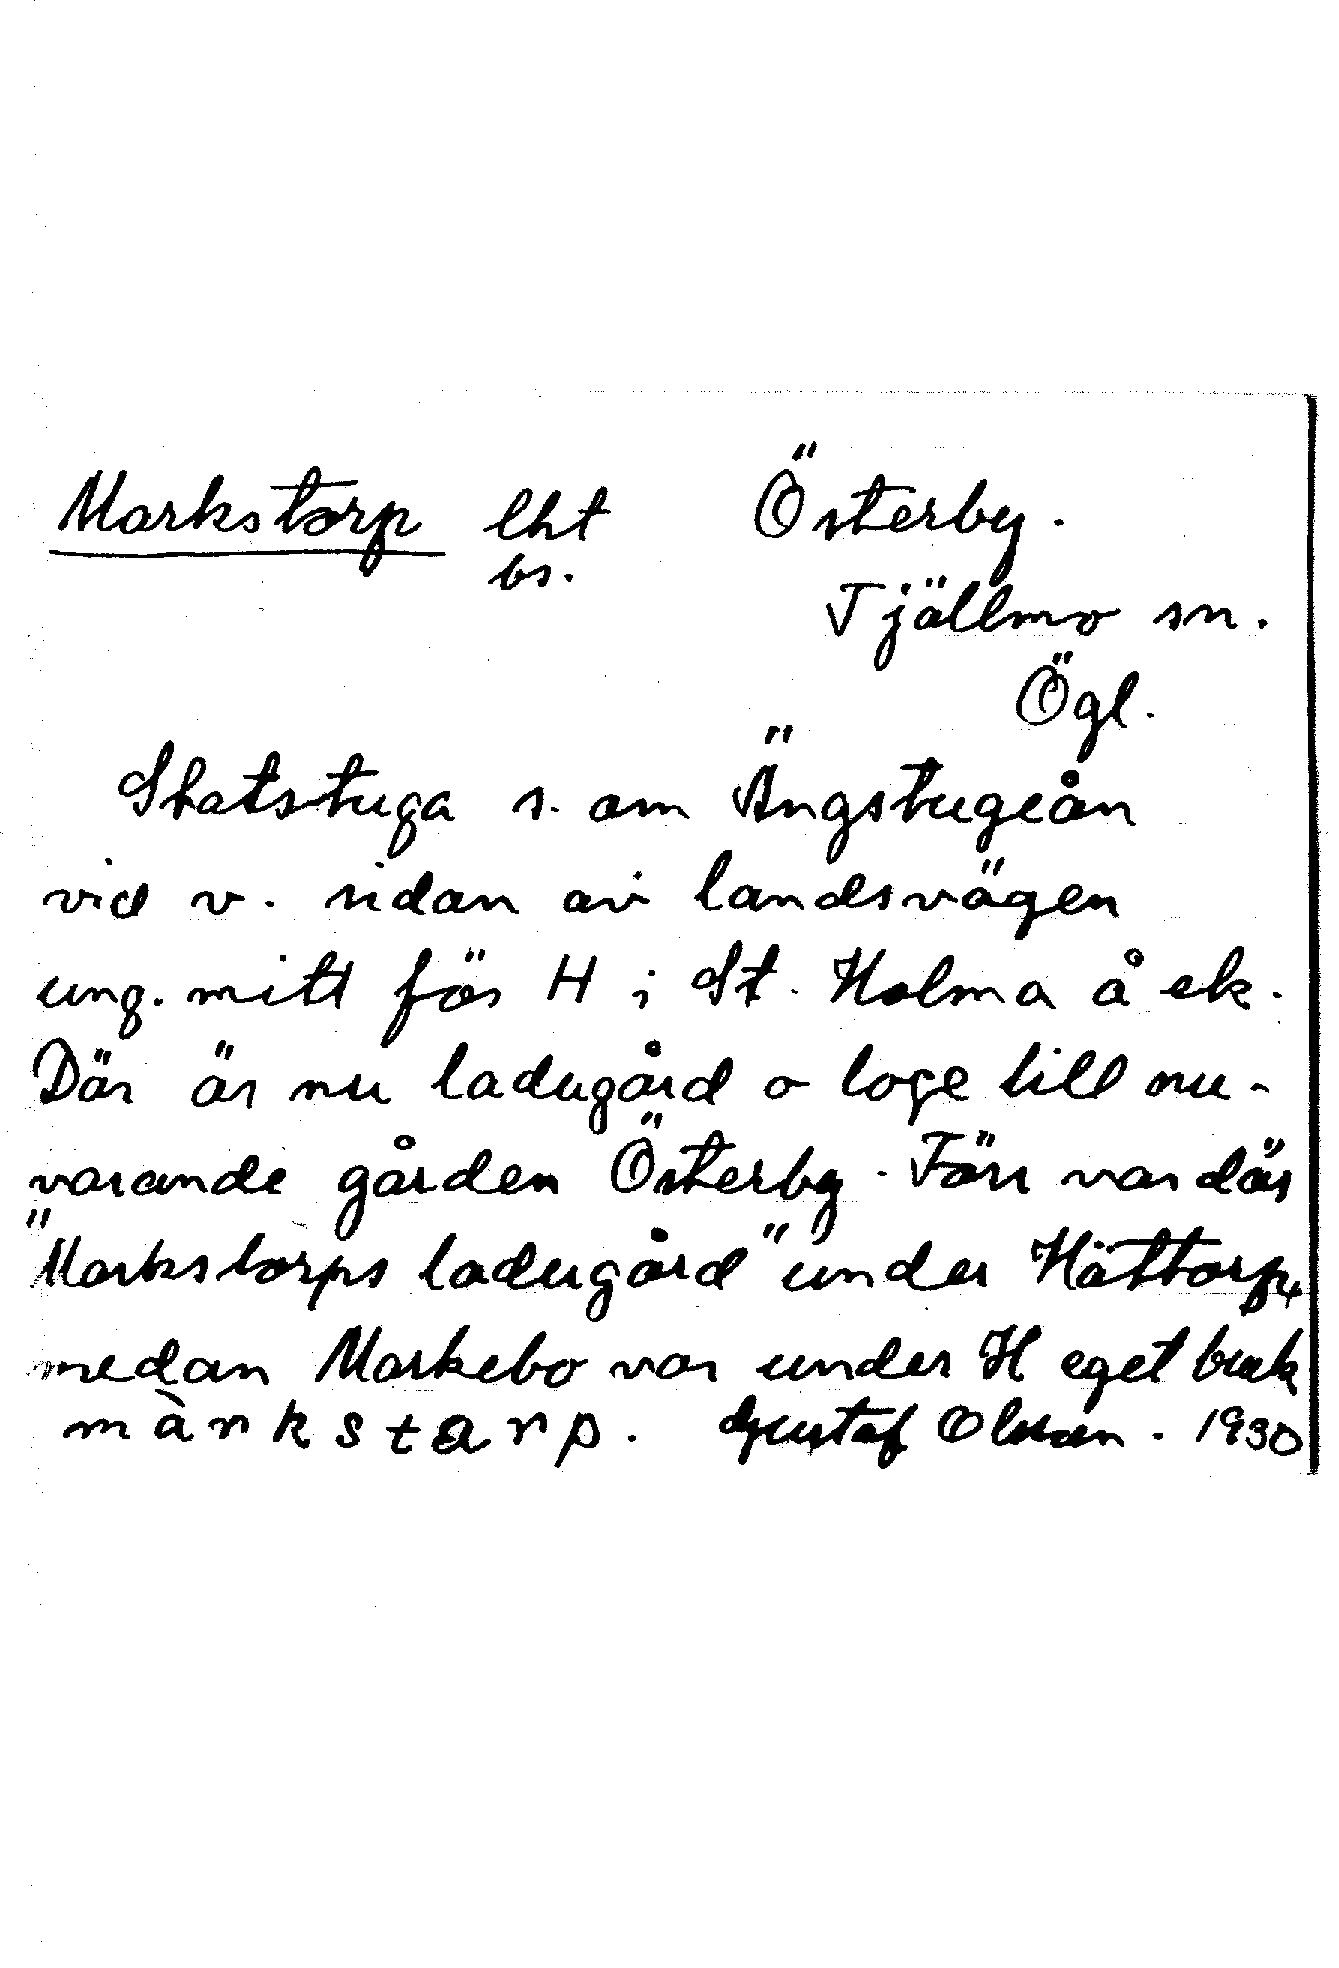 Markstorp lht Österby.
bs.
Tjällmo sn.
Ögl.
Statstuga s. om Ängstugeån
vid v. sidan av landsvägen
ung. mitt för H i St. Holma å ek.
Där är nu ladugård o loge till nu-
varande gården Österby. Förr var där
"Markstorps ladugård" under Hättorp,
medan Markebo var under H eget bruk
màrkstarp. Gustaf Olsson. 1930